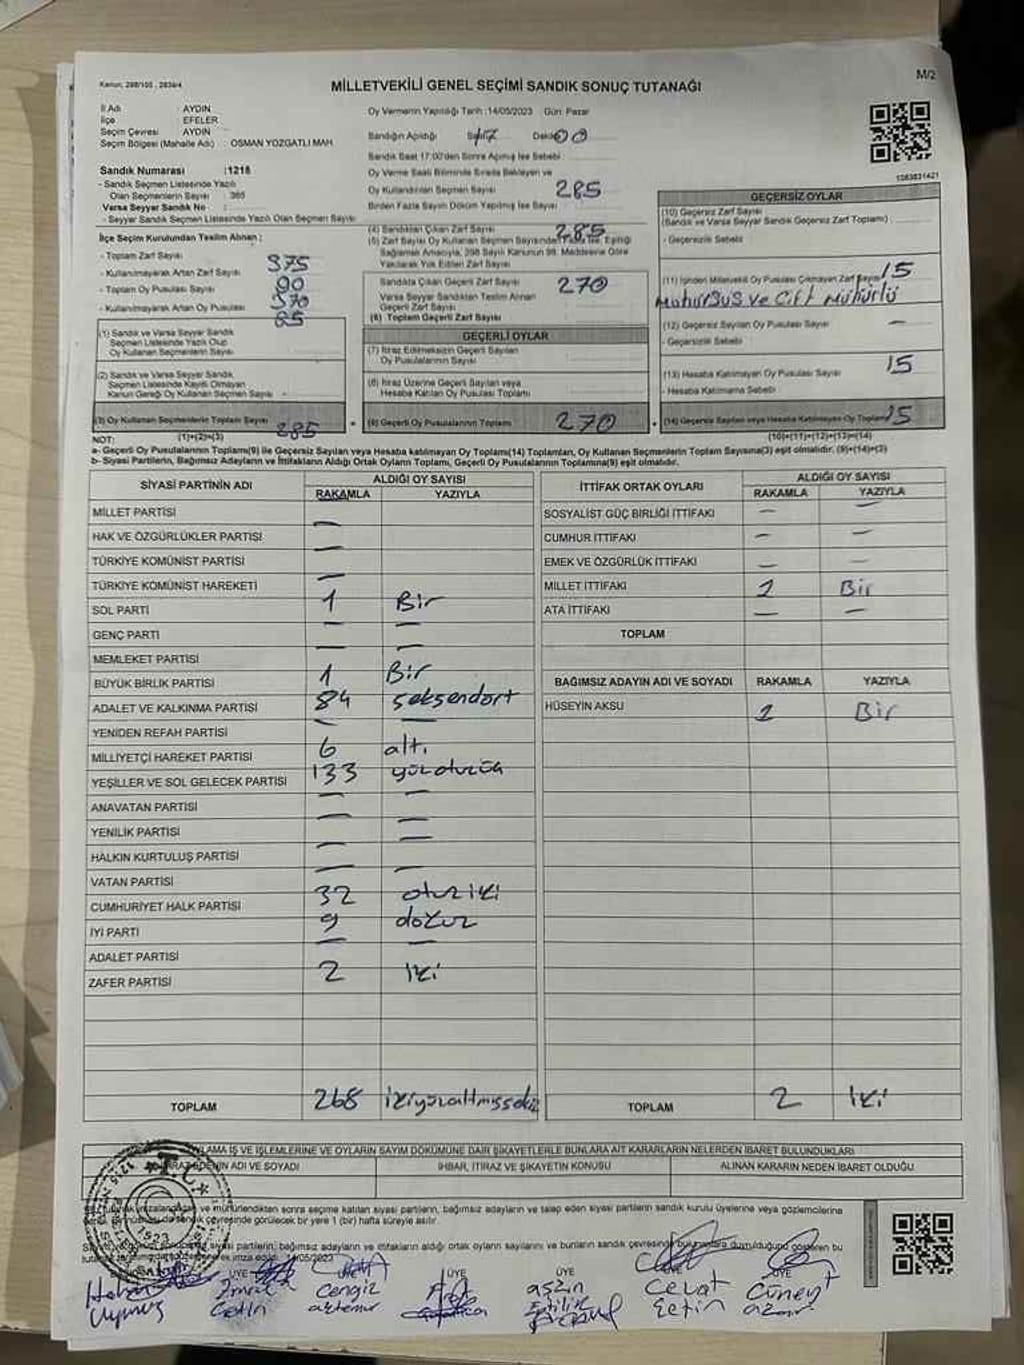 Kanun: 298/105 , 2839/4
MİLLETVEKİLİ GENEL SEÇİMİ SANDIK SONUÇ TUTANAĞI
M/2
İl Adı : AYDIN
İlçe : EFELER
Seçim Çevresi : AYDIN
Seçim Bölgesi (Mahalle Adı) : OSMAN YOZGATLI MAH.
Oy Vermenin Yapıldığı Tarih :14/05/2023 Gün: Pazar
Sandığın Açıldığı Saat 17 Dakika 00
Sandık Saat 17:00'den Sonra Açılmış İse Sebebi
Oy Verme Saati Bitiminde Sırada Bekleyen ve
Oy Kullandırılan Seçmen Sayısı 285
Birden Fazla Sayım Döküm Yapılmış İse Sayısı
1083831421
Sandık Numarası :1218
- Sandık Seçmen Listesinde Yazılı
Olan Seçmenlerin Sayısı : 365
Varsa Seyyar Sandık No :
- Seyyar Sandık Seçmen Listesinde Yazılı Olan Seçmen Sayısı:
İlçe Seçim Kurulundan Teslim Alınan :
- Toplam Zarf Sayısı 375
- Kullanılmayarak Artan Zarf Sayısı 90
- Toplam Oy Pusulası Sayısı 370
- Kullanılmayarak Artan Oy Pusulası 85
(1) Sandık ve Varsa Seyyar Sandık
Seçmen Listesinde Yazılı Olup
Oy Kullanan Seçmenlerin Sayısı
(2) Sandık ve Varsa Seyyar Sandık
Seçmen Listesinde Kayıtlı Olmayan
Kanun Gereği Oy Kullanan Seçmen Sayısı
(3) Oy Kullanan Seçmenlerin Toplam Sayısı 285
(1)+(2)=(3)
(4) Sandıktan Çıkan Zarf Sayısı 285
(5) Zarf Sayısı Oy Kullanan Seçmen Sayısından Fazla İse, Eşitliği
Sağlamak Amacıyla, 298 Sayılı Kanunun 98. Maddesine Göre
Yakılarak Yok Edilen Zarf Sayısı
Sandıkta Çıkan Geçerli Zarf Sayısı 270
Varsa Seyyar Sandıktan Teslim Alınan
Geçerli Zarf Sayısı
(6) Toplam Geçerli Zarf Sayısı
GEÇERLİ OYLAR
(7) İtiraz Edilmeksizin Geçerli Sayılan
Oy Pusulalarının Sayısı
(8) İtiraz Üzerine Geçerli Sayılan veya
Hesaba Katılan Oy Pusulası Toplamı
(9) Geçerli Oy Pusulalarının Toplamı 270
GEÇERSİZ OYLAR
(10) Geçersiz Zarf Sayısı
(Sandık ve Varsa Seyyar Sandık Geçersiz Zarf Toplamı)
- Geçersizlik Sebebi
(11) İçinden Milletvekili Oy Pusulası Çıkmayan Zarf Sayısı 15
Mühürsüs ve Çift Mühürlü
(12) Geçersiz Sayılan Oy Pusulası Sayısı —
- Geçersizlik Sebebi
(13) Hesaba Katılmayan Oy Pusulası Sayısı 15
- Hesaba Katılmama Sebebi
(14) Geçersiz Sayılan veya Hesaba Katılmayan Oy Toplamı 15
(10)+(11)+(12)+(13)=(14)
NOT:
a- Geçerli Oy Pusulalarının Toplamı(9) ile Geçersiz Sayılan veya Hesaba katılmayan Oy Toplamı(14) Toplamları, Oy Kullanan Seçmenlerin Toplam Sayısına(3) eşit olmalıdır. (9)+(14)=(3)
b- Siyasi Partilerin, Bağımsız Adayların ve İttifakların Aldığı Ortak Oyların Toplamı, Geçerli Oy Pusulalarının Toplamına(9) eşit olmalıdır.
SİYASİ PARTİNİN ADI
ALDIĞI OY SAYISI
RAKAMLA YAZIYLA
MİLLET PARTİSİ —
HAK VE ÖZGÜRLÜKLER PARTİSİ —
TÜRKİYE KOMÜNİST PARTİSİ —
TÜRKİYE KOMÜNİST HAREKETİ 1 Bir
SOL PARTİ — —
GENÇ PARTİ — —
MEMLEKET PARTİSİ 1 Bir
BÜYÜK BİRLİK PARTİSİ
ADALET VE KALKINMA PARTİSİ 84 seksendört
YENİDEN REFAH PARTİSİ — —
MİLLİYETÇİ HAREKET PARTİSİ 6 altı
YEŞİLLER VE SOL GELECEK PARTİSİ 133
ANAVATAN PARTİSİ — —
YENİLİK PARTİSİ — —
HALKIN KURTULUŞ PARTİSİ — —
VATAN PARTİSİ — —
CUMHURİYET HALK PARTİSİ 32 otuz iki
İYİ PARTİ 9 dokuz
ADALET PARTİSİ — —
ZAFER PARTİSİ 2 iki
TOPLAM 268 ikiyüzaltmışsekiz
İTTİFAK ORTAK OYLARI
ALDIĞI OY SAYISI
RAKAMLA YAZIYLA
SOSYALİST GÜÇ BİRLİĞİ İTTİFAKI — —
CUMHUR İTTİFAKI — —
EMEK VE ÖZGÜRLÜK İTTİFAKI — —
MİLLET İTTİFAKI 1 Bir
ATA İTTİFAKI — —
TOPLAM
BAĞIMSIZ ADAYIN ADI VE SOYADI RAKAMLA YAZIYLA
HÜSEYİN AKSU 1 Bir
TOPLAM 2 iki
İŞ VE İŞLEMLERİNE VE OYLARIN SAYIM DÖKÜMÜNE DAİR ŞİKAYETLERLE BUNLARA AİT KARARLARIN NELERDEN İBARET BULUNDUKLARI
ADI VE SOYADI
İHBAR, İTİRAZ VE ŞİKAYETİN KONUSU
ALINAN KARARIN NEDEN İBARET OLDUĞU
ve mühürlendikten sonra seçime katılan siyasi partilerin, bağımsız adayların ve talep eden siyasi partilerin sandık kurulu üyelerine veya gözlemcilerine
çevresinde görülecek bir yere 1 (bir) hafta süreyle asılır.
siyasi partilerin, bağımsız adayların ve ittifakların aldığı ortak oyların sayılarını ve bunların sandık çevresinde
14/05/2023
ÜYE ÜYE ÜYE ÜYE ÜYE ÜYE
Cengiz
Cevat Çetin
Cüneyt